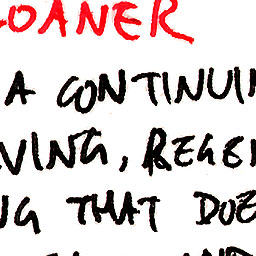 OANER
A CONTINUI
VING, REGE
NG THAT DOE